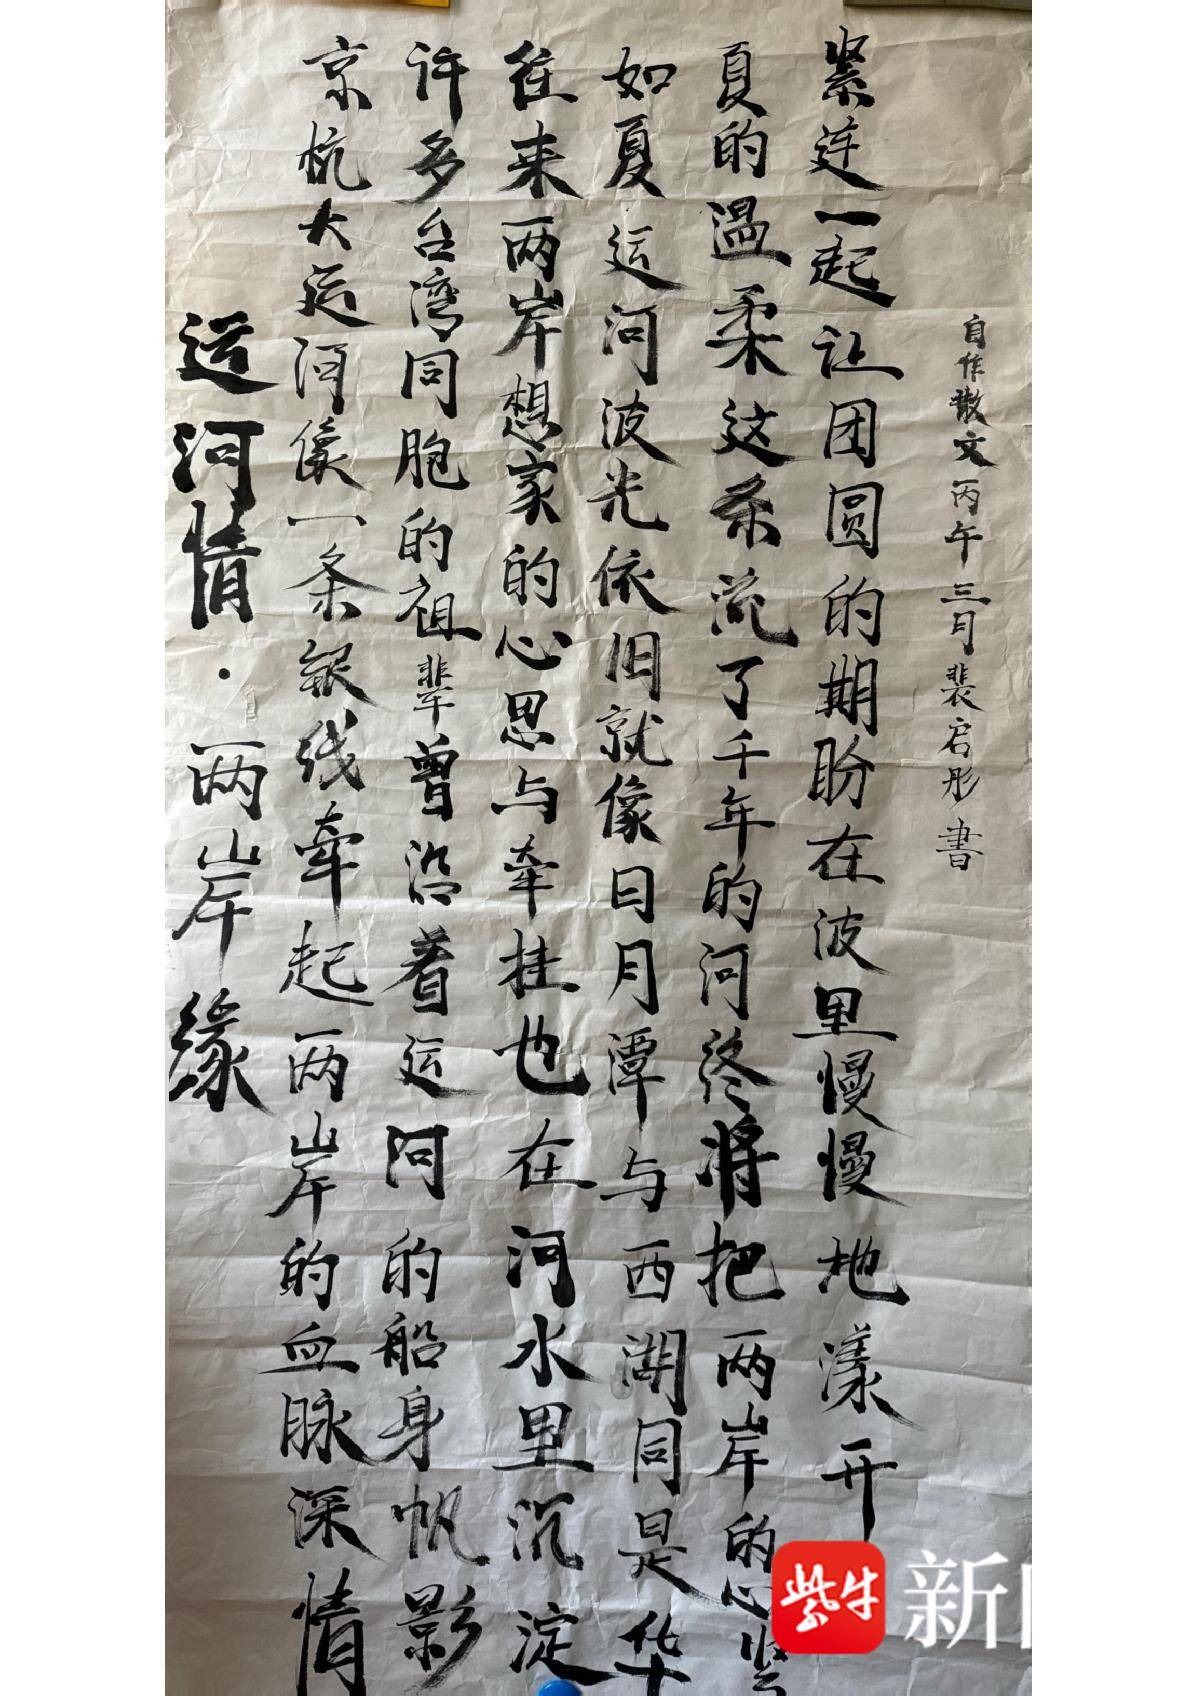 运河情·两岸缘
京杭大运河像一条银线牵起两岸的血脉深情
许多台湾同胞的祖辈曾沿着运河的船身帆影
往来两岸想家的心思与牵挂也在河水里沉淀
如夏运河波光依旧就像日月潭与西湖同是华
夏的温柔这条流了千年的河终将把两岸的心紧
紧连一起让团圆的期盼在波里慢慢地漾开
自作散文丙午三月裴启彤书
紫牛新